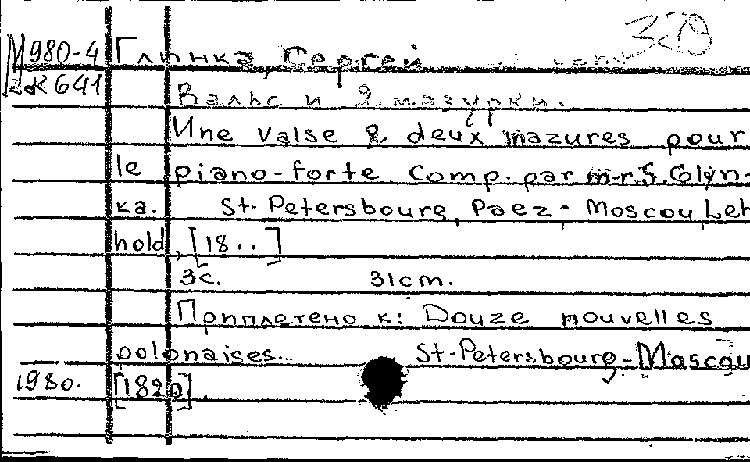 329
М980-4 Глинка, Сергей
2к641
Вальс и 2 мазурки.
Une valse & deux mazures pour
le piano-forte Comp. par m-r. S. Glyn-
ka. St. Petersbourg, Paez - Moscou, Leh
hold, [18..]
3с. 31cm.
Приплетено к: Douze nouvelles
polonaises... St-Petersbourg-Moscou
1980. [1820].